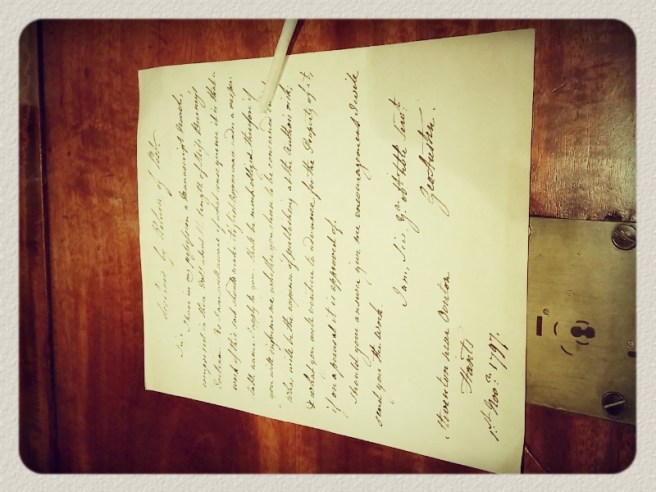 declined by Return of Post
Sir I have in my possession a Manuscript Novel,
comprised in three Vols. about the length of Miss Burney's
Evelina. As I am well aware of what consequence it is that a
work of this sort should make its first appearance under a respec-
table name I apply to you. Shall be much obliged therefore if
you will inform me whether you chuse to be concerned in
What will be the expense of publishing at the Author's risk;
& what you will venture to advance for the Property of it,
if on a perusal it is approved of.
Should your answer give me encouragement I will
send you the work.
I am, Sir, Yr. obt. hble Servt.
Geo Austen.
Steventon near Overton
Hants
1st. Novr. 1797.